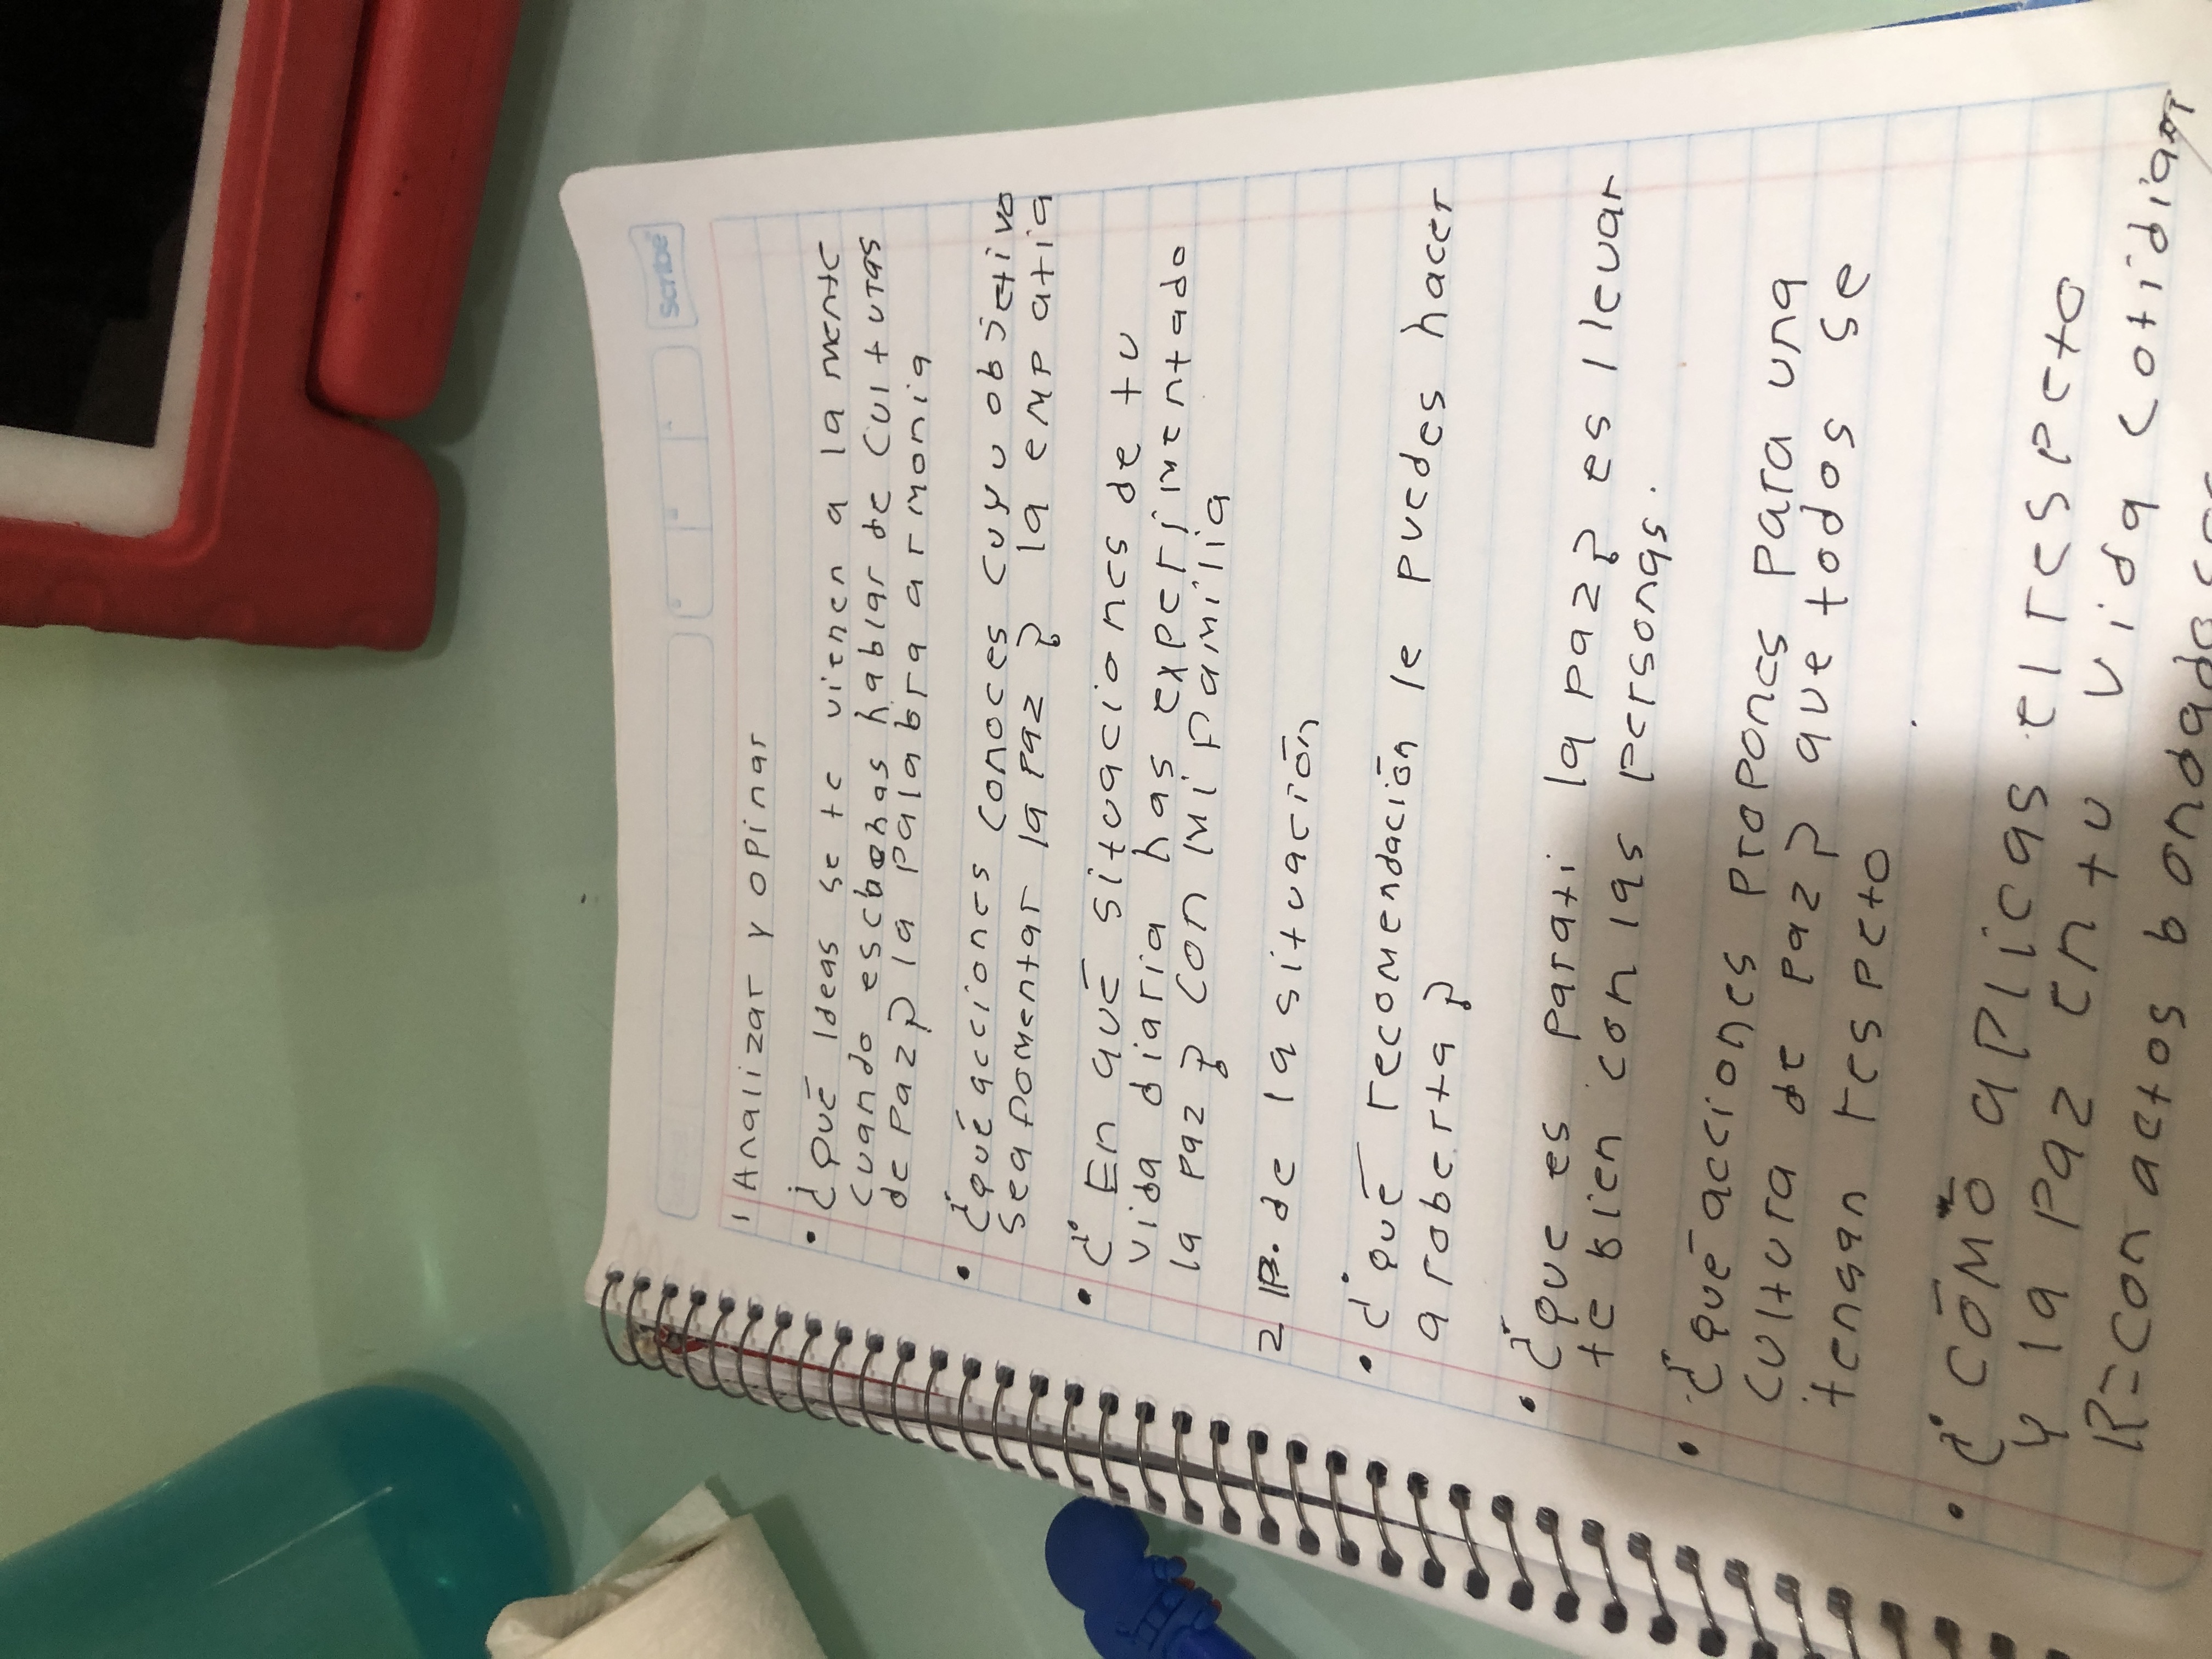 scribe
1 Analizar y opinar
• ¿qué Ideas se te vienen a la mente
cuando escbohas hablar de Cultutas
de paz? la palabra armonia
• ¿qué acciones conoces cuyu objetivo
sea pomentar la paz? la empatia
• ¿En qué situaciones de tu
vida diaria has experimentado
la paz? con mi pamilia
2 P. de la situación
• ¿qué recomendación le puedes hacer
a roberta?
• ¿que es parati la paz? es llevar
te bien con las personas.
• ¿qué acciones propones para una
cultura de paz? que todos se
tengan respecto
• ¿cómo aplicas el respecto
y la paz en tu vida cotidian
R=con actos bondados